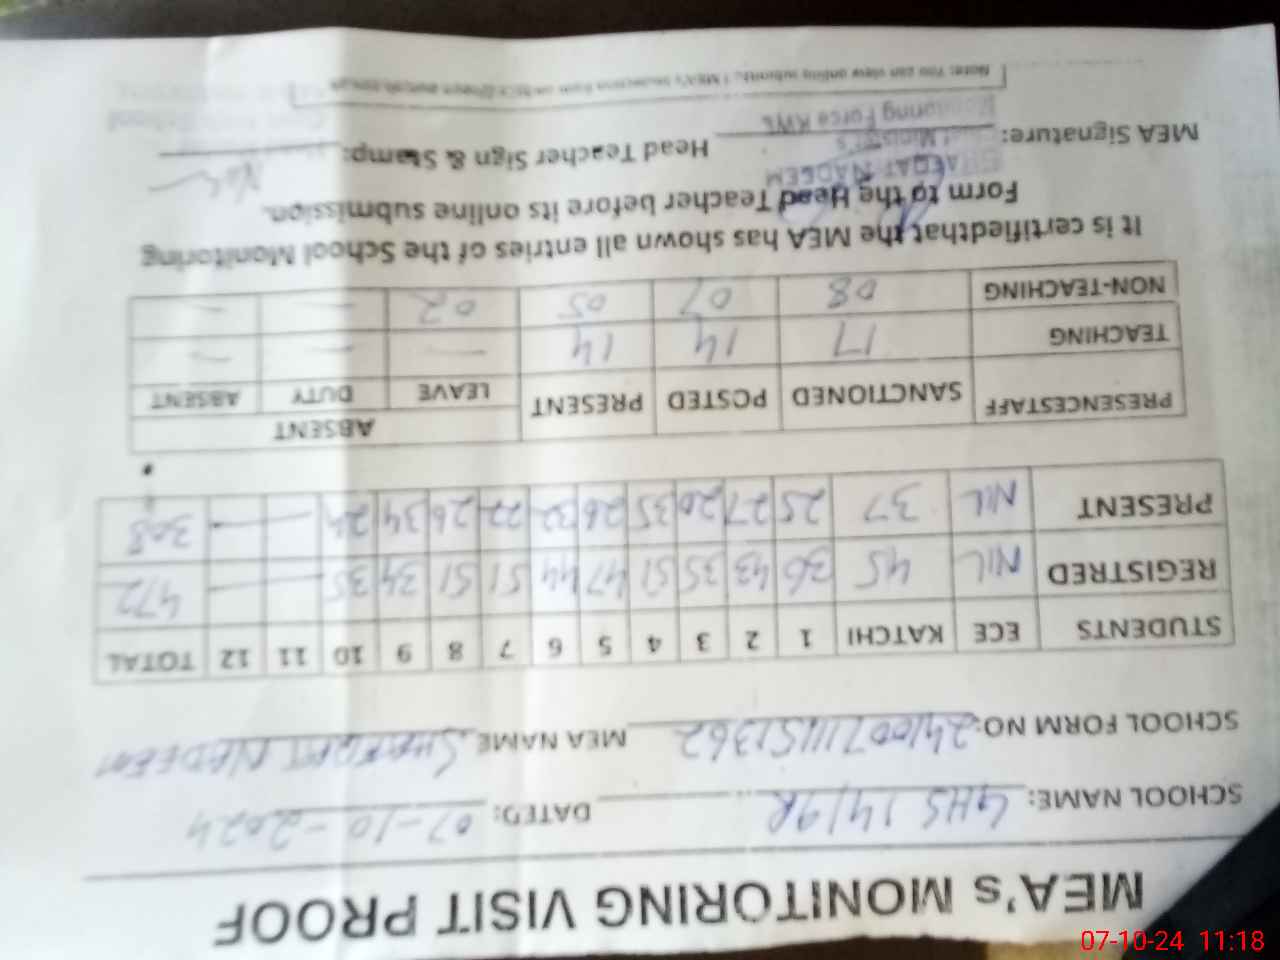 MEA's MONITORING VISIT PROOF
SCHOOL NAME: GHS 14/9R DATED: 07-10-2024
SCHOOL FORM NO: MEA NAME
STUDENTS ECE KATCHI 1 2 3 4 5 6 7 8 9 10 11 12 TOTAL
REGISTRED NIL 45 36 43 35 51 47 44 51 51 34 35 — 472
PRESENT NIL 37 25 27 20 35 26 32 22 26 34 24 — 308
PRESENCESTAFF SANCTIONED POSTED PRESENT ABSENT
LEAVE DUTY ABSENT
TEACHING 17 14 14 — — —
NON-TEACHING 08 07 05 02 — —
It is certifiedthat the MEA has shown all entries of the School Monitoring
Form to the Head Teacher before its online submission.
MEA Signature: Head Teacher Sign & Stamp:
NADEEM
Monitoring Force KWL
Note: You can view online submitted MEA's
07-10-24 11:18